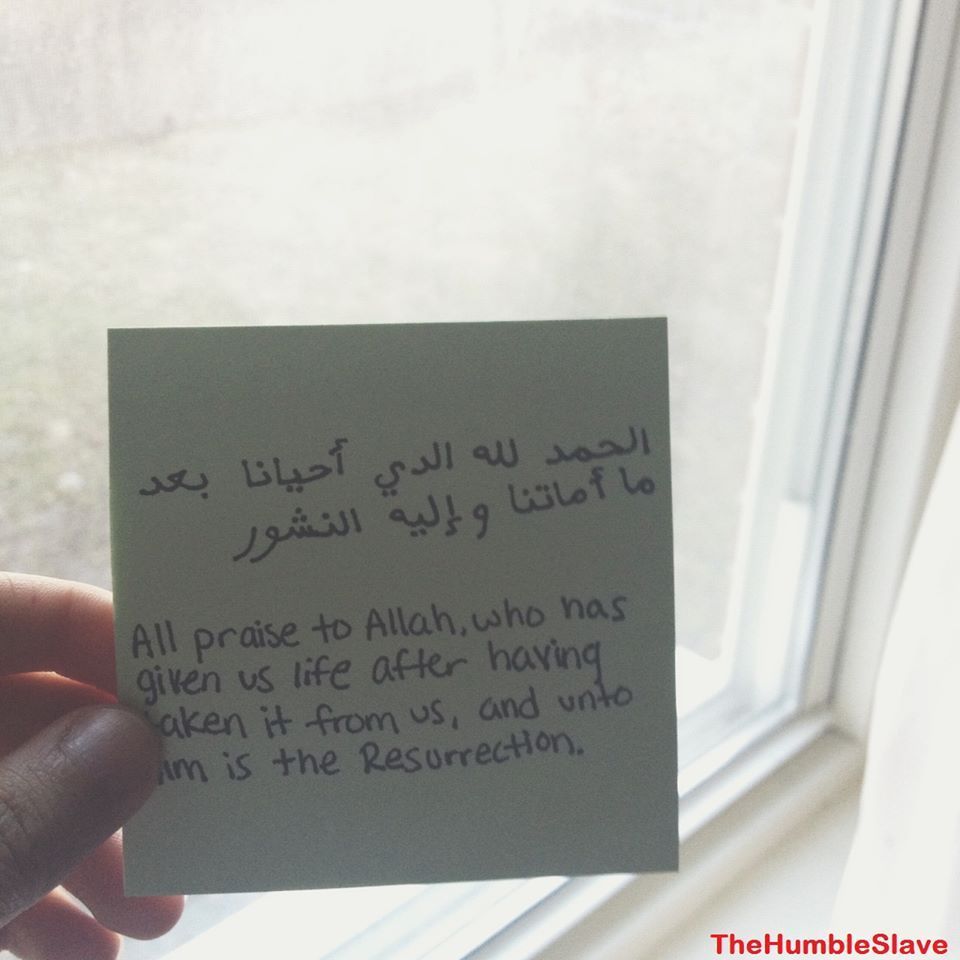 الحمد لله الدي أحيانا بعد
ما أماتنا وإليه النشور
All praise to Allah, who has
given us life after having
taken it from us, and unto
him is the Resurrection.
TheHumbleSlave